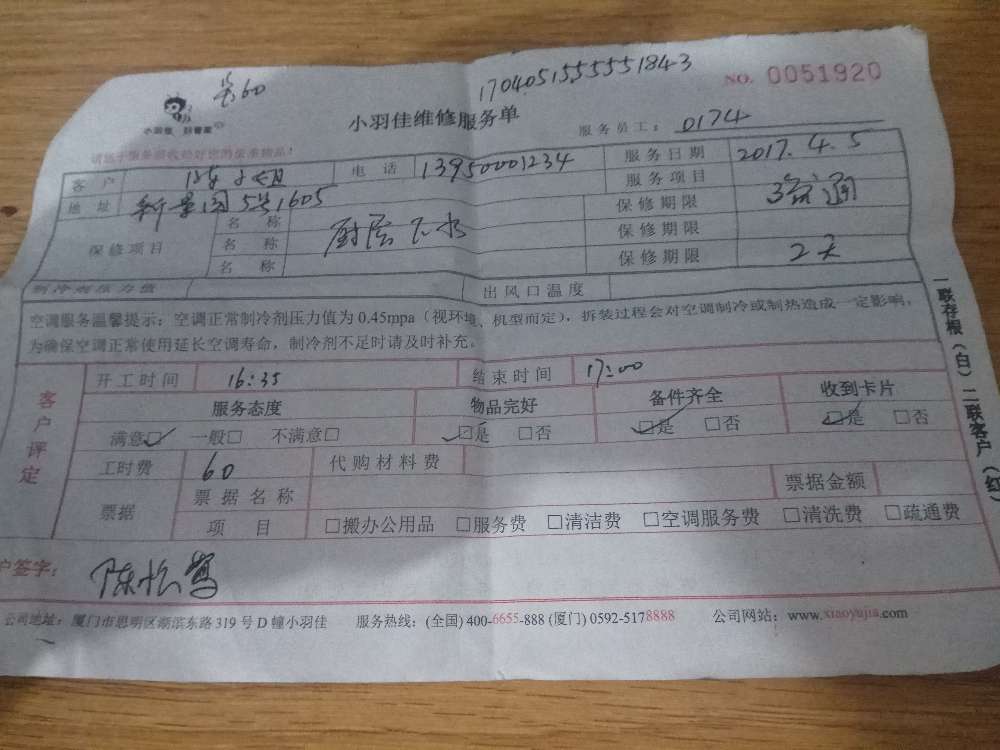 60
17040515555551843
NO. 0051920
小羽佳 好管家
小羽佳维修服务单
服务员工： 0174
客户 陈小姐 电话 13950001234 服务日期 2017.4.5
地址 新景园5号1605 服务项目 疏通
保修项目 名称 厨房下水 保修期限
名称 保修期限
名称 保修期限 2天
制冷剂压力值 出风口温度
空调服务温馨提示：空调正常制冷剂压力值为 0.45mpa（视环境、机型而定），拆装过程会对空调制冷或制热造成一定影响，
为确保空调正常使用延长空调寿命，制冷剂不足时请及时补充。
一联存根（白）二联客户（红）
客户评定
开工时间 16:35 结束时间 17:00
服务态度 物品完好 备件齐全 收到卡片
满意☑ 一般□ 不满意□ ☑是 □否 ☑是 □否 ☑是 □否
工时费 60 代购材料费
票据 票据名称 票据金额
项目 □搬办公用品 □服务费 □清洁费 □空调服务费 □清洗费 □疏通费
户签字：
公司地址：厦门市思明区湖滨东路 319 号 D 幢小羽佳 服务热线：(全国) 400-6655-888 (厦门) 0592-5178888 公司网站：www.xiaoyujia.com